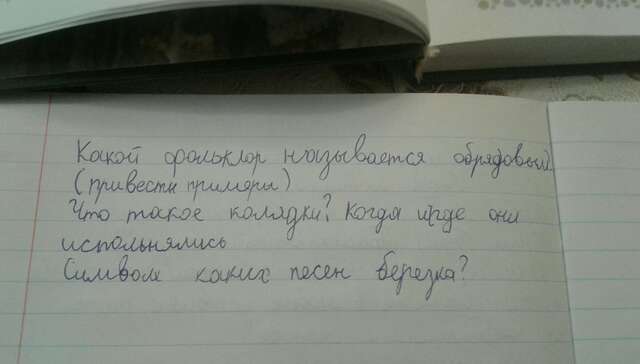 Какой фольклор называется обрядовый
(привести примеры)
Что такое колядки? Когда и где они
испольнялись
Символ каких песен березка?